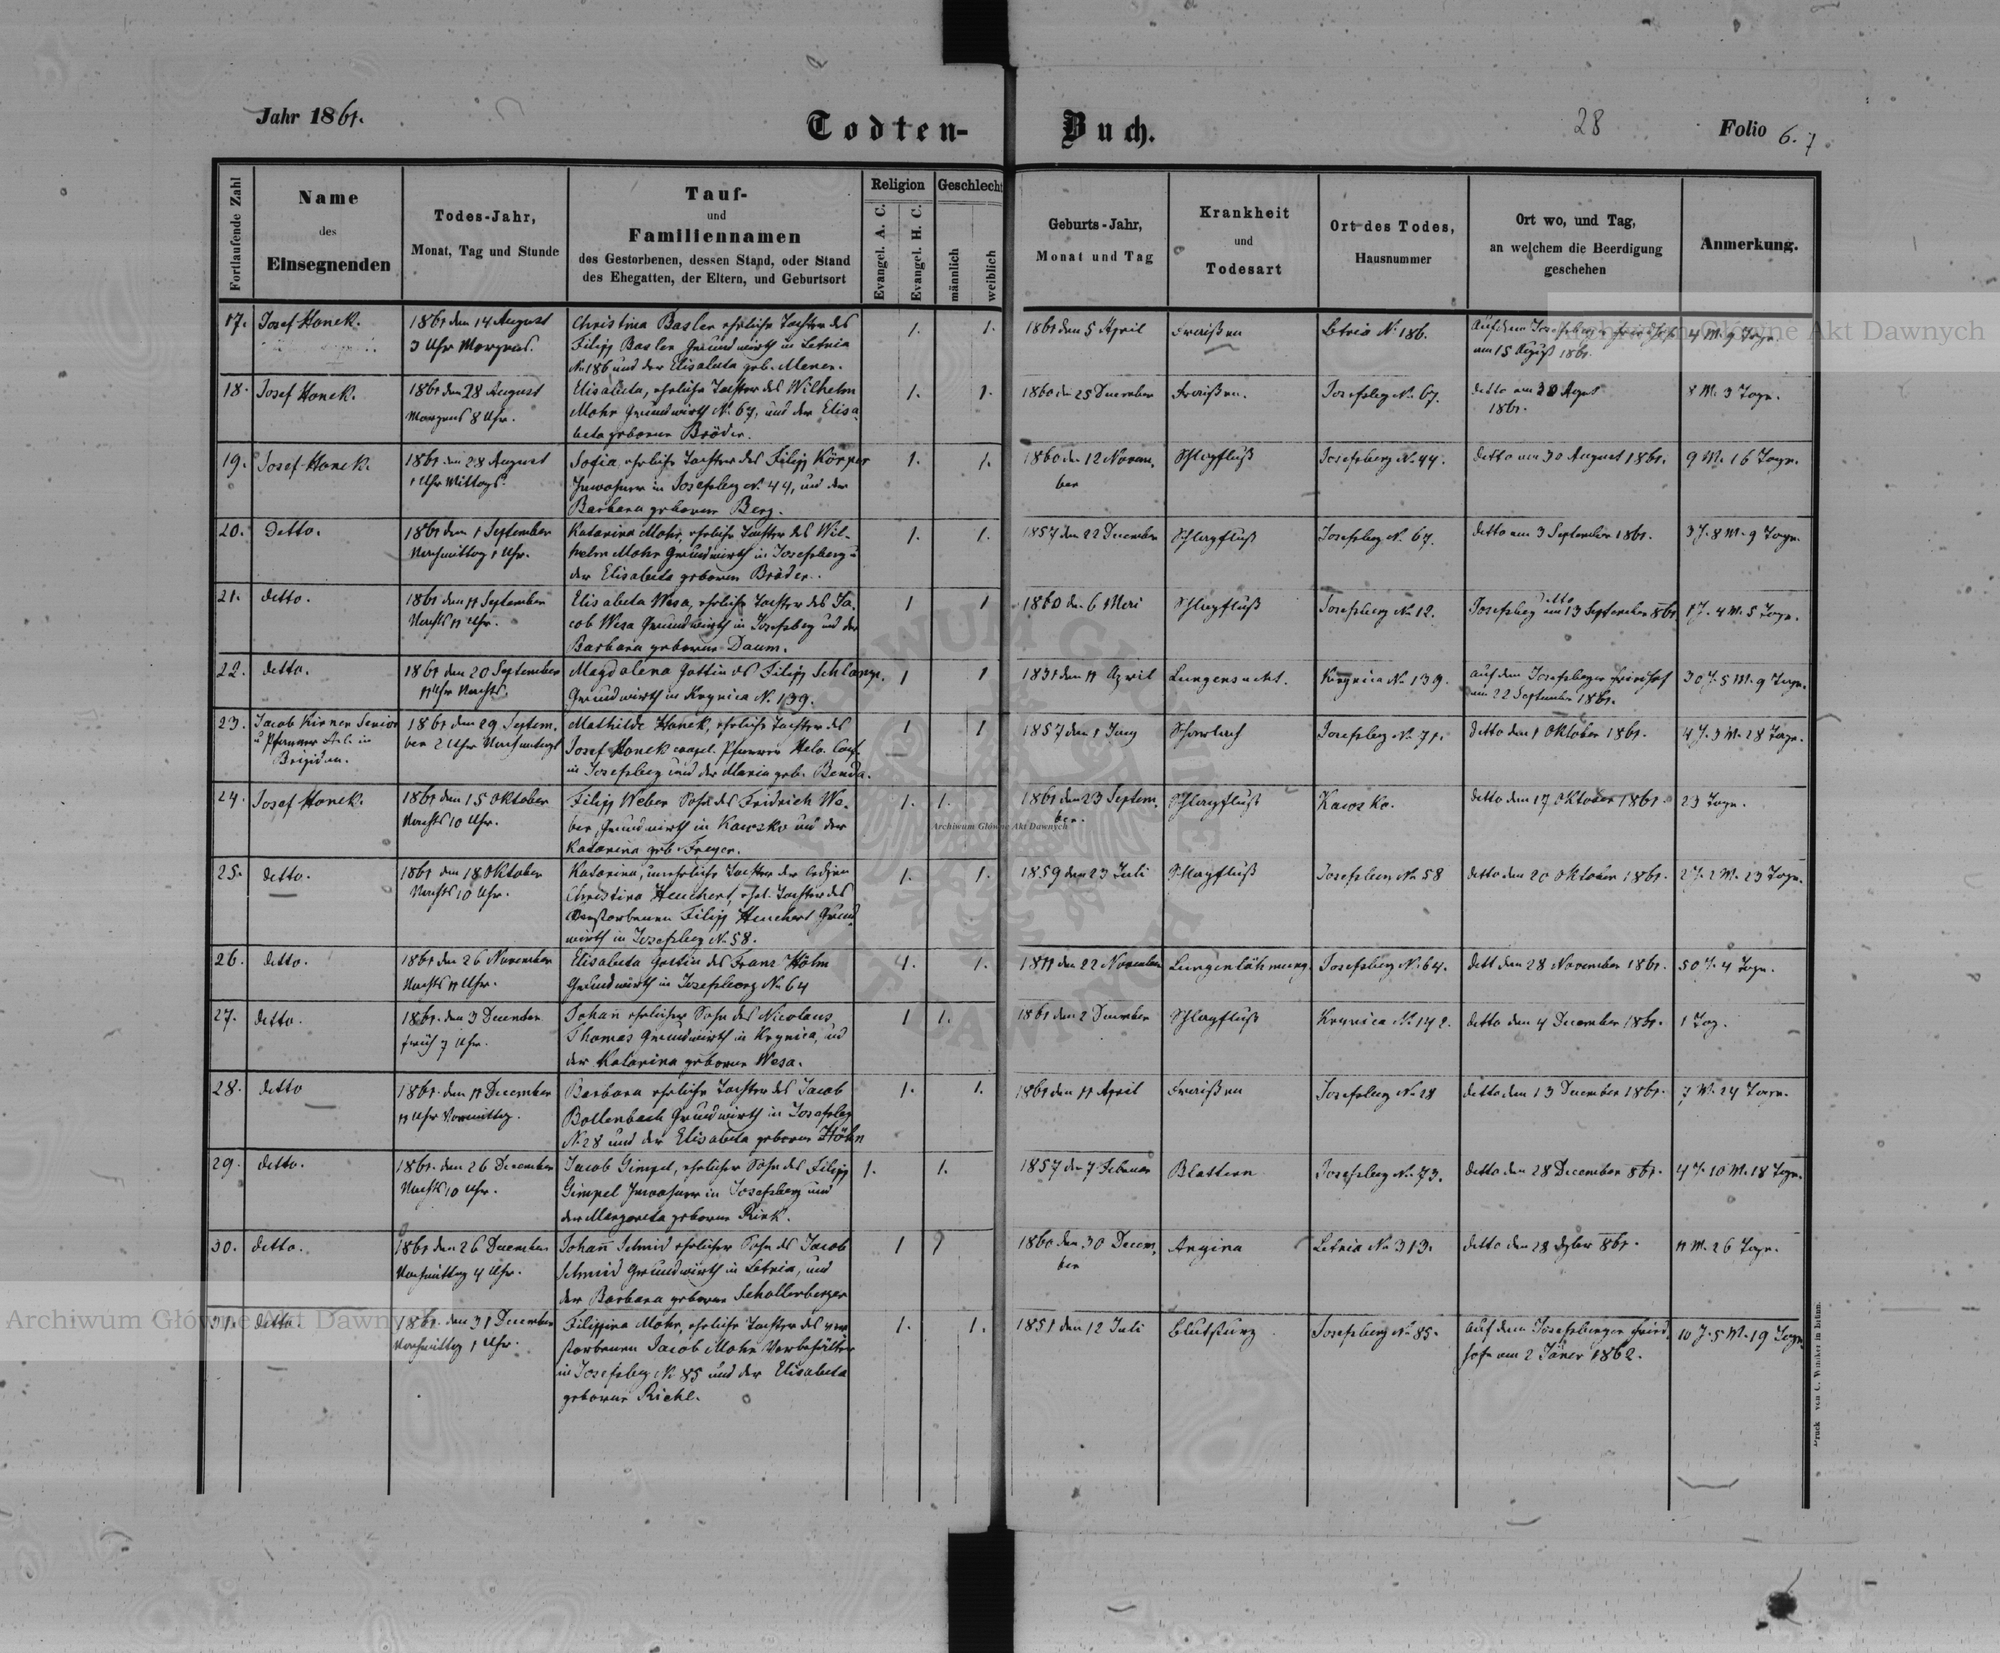 Jahr 1861.
Todten-Buch.
28
Folio 6. 7.
Fortlaufende Zahl
Name
des
Einsegnenden
Todes-Jahr,
Monat, Tag und Stunde
Tauf-
und
Familiennamen
des Gestorbenen, dessen Stand, oder Stand
des Ehegatten, der Eltern, und Geburtsort
Religion
Evangel. A. C.
Evangel. H. C.
Geschlecht
männlich
weiblich
Geburts-Jahr,
Monat und Tag
Krankheit
und
Todesart
Ort des Todes,
Hausnummer
Ort wo, und Tag,
an welchem die Beerdigung
geschehen
Anmerkung.
17.
Josef Honek.
1861 den 14 August
3 Uhr Morgens.
Christina Basler eheliche Tochter des
Filipp Basler Grundwirth in Letnia
No 186 und der Elisabeta geb.
1.
1.
1861 den 5 April
Fraißen
Letnia No 186.
Auf dem Josefsberger Friedhofe
am 15 August 1861.
4 M. 9 Tage.
18.
Josef Honek.
1861 den 28 August
Morgens 8 Uhr.
Elisabeta, eheliche Tochter des Wilhelm
Mohr Grundwirth No. 67, und der Elisa-
beta geborene Bröder.
1.
1.
1860 den 25 December
Fraißen.
Josefsberg No. 67.
detto am 30 August
1861.
8 M. 3 Tage.
19.
Josef Honek.
1861 den 28 August
1 Uhr Mittags.
Sofia, eheliche Tochter des Filipp Körper
Inwohner in Josefsberg No. 44, und der
Barbara geborene Berg.
1.
1.
1860 den 12 Novem-
ber
Schlagfluß
Josefsberg No. 44.
detto am 30 August 1861.
9 M. 16 Tage.
20.
Detto.
1861 den 1 September
Nachmittag 1 Uhr.
Katarina Mohr, eheliche Tochter des Wil-
helm Mohr Grundwirth in Josefsberg u
der Elisabeta geborene Bröder.
1.
1.
1857 den 22 December
Schlagfluß
Josefsberg No. 67.
detto am 3 September 1861.
3 J. 8 M. 9 Tage.
21.
detto.
1861 den 11 September
Nachts 11 Uhr.
Elisabeta Wesa, eheliche Tochter des Ja-
cob Wesa Grundwirth in Josefsberg und der
Barbara geborene Daum.
1
1
1860 den 6 Mai
Schlagfluß
Josefsberg No. 12.
Josefsberg detto am 13 September 861.
1 J. 4 M. 5 Tage.
22.
detto.
1861 den 20 September
11 Uhr Nachts.
Magdalena Gattin des Filipp Schlamp.
Grundwirth in Krynica No. 139.
1
1
1831 den 11 April
Lungensucht.
Krynica No. 139.
auf dem Josefsberger Friedhof
am 22 September 1861.
30 J. 5 M. 9 Tage.
23.
Jacob Kirner Senior
u Pfarrer in
Brigidau.
1861 den 29 Septem-
ber 2 Uhr Nachmittags
Mathilde Honek, eheliche Tochter des
Josef Honek evangl. Pfarrer Helv. Conf.
in Josefsberg und der Maria geb. Benda.
1
1
1857 den 1 Juny
Scharlach
Josefsberg No. 71.
detto den 1 Oktober 1861.
4 J. 3 M. 28 Tage.
24.
Josef Honek.
1861 den 15 Oktober
Nachts 10 Uhr.
Filipp Weber Sohn des Fridrich We-
ber, Grundwirth in Kawsko und der
Katarina geb. Freyer.
1.
1.
1861 den 23 Septem-
ber.
Schlagfluß
Kawsko.
detto den 17 Oktober 1861.
23 Tage.
25.
detto.
1861 den 18 Oktober
Nachts 10 Uhr.
Katarina, uneheliche Tochter der ledigen
Christina Heuchert, ehel. Tochter des
verstorbenen Filipp Heuchert Grund-
wirth in Josefsberg No. 58.
1.
1.
1859 den 23 Juli
Schlagfluß
Josefsberg No 58
detto den 20 Oktober 1861.
2 J. 2 M. 23 Tage.
26.
detto.
1861 den 26 November
Nachts 11 Uhr.
Elisabeta Gattin des Franz Höhn
Grundwirth in Josefsberg No 64
1.
1.
1811 den 22 November
Lungenlähmung.
Josefsberg No. 64.
dett den 28 November 1861.
50 J. 4 Tage.
27.
detto.
1861. den 3 December
früh 7 Uhr.
Johan̄ ehelicher Sohn des Nicolaus
Thomas Grundwirth in Krynica, und
der Katarina geborene Wesa.
1
1.
1861 den 2 December
Schlagfluß
Krynica No. 142.
detto den 4 December 1861.
1 Tag.
28.
detto
1861. den 11 December
11 Uhr Vormittag.
Barbara eheliche Tochter des Jacob
Bollenbach Grundwirth in Josefsberg
No. 28 und der Elisabeta geborene Höhn
1.
1.
1861 den 11 April
Fraißen
Josefsberg No. 28
detto den 13 December 1861.
7 M. 24 Tage.
29.
detto.
1861. den 26 December
Nachts 10 Uhr.
Jacob Gimpel, ehelicher Sohn des Filipp
Gimpel Inwohner in Josefsberg und
der Margareta geborene Rink.
1.
1.
1857 den 7 Februar
Blattern
Josefsberg No. 73.
detto den 28 December 861.
4 J. 10 M. 18 Tage.
30.
detto.
1861 den 26 December
Nachmittag 4 Uhr.
Johan̄ Schmid ehelicher Sohn des Jacob
Schmid Grundwirth in Letnia, und
der Barbara geborene Schollenberger
1
1
1860 den 30 Decem-
ber
Angina
Letnia No 313.
detto den 28 861.
11 M. 26 Tage.
31.
detto.
1861. den 31 December
Nachmittag 1 Uhr.
Filippina Mohr, eheliche Tochter des ver-
storbenen Jacob Mohr Vorbehälter
in Josefsberg No 85 und der Elisabeta
geborene Riehl.
1.
1.
1851 den 12 Juli
Blutsturz
Josefsberg No. 85.
Auf dem Josefsberger Fried-
hofe am 2 Jäner 1862.
10 J. 5 M. 19 Tage.
Druck von C. Winiker in Brünn.
Archiwum Główne Akt Dawnych
Archiwum Główne Akt Dawnych
Archiwum Główne Akt Dawnych
ARCHIWUM GŁÓWNE AKT DAWNYCH